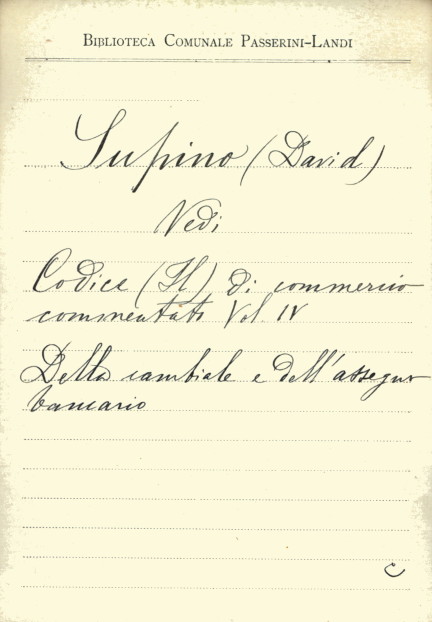 BIBLIOTECA COMUNALE PASSERINI-LANDI
Supino (David)
Vedi
Codice (Il) di commercio
commentato Vol. IV
Della cambiale e dell'assegno
bancario
C